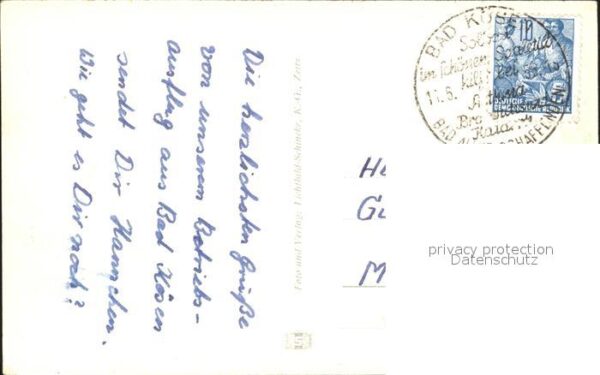 Die herzlichsten Grüße
von unserem Betriebs-
ausflug aus Bad Kösen
sendet Dir Hannchen.
Wie geht es Dir noch?
Foto und Verlag: Lichtbild-Schincke, K.-G., Zeitz
BAD KÖSEN
Sol-
im schönen Saaletal
bei
11.5.
10
DEUTSCHE
DEMOKRATISCHE REPUBLIK
He
Gu
M
privacy protection
Datenschutz